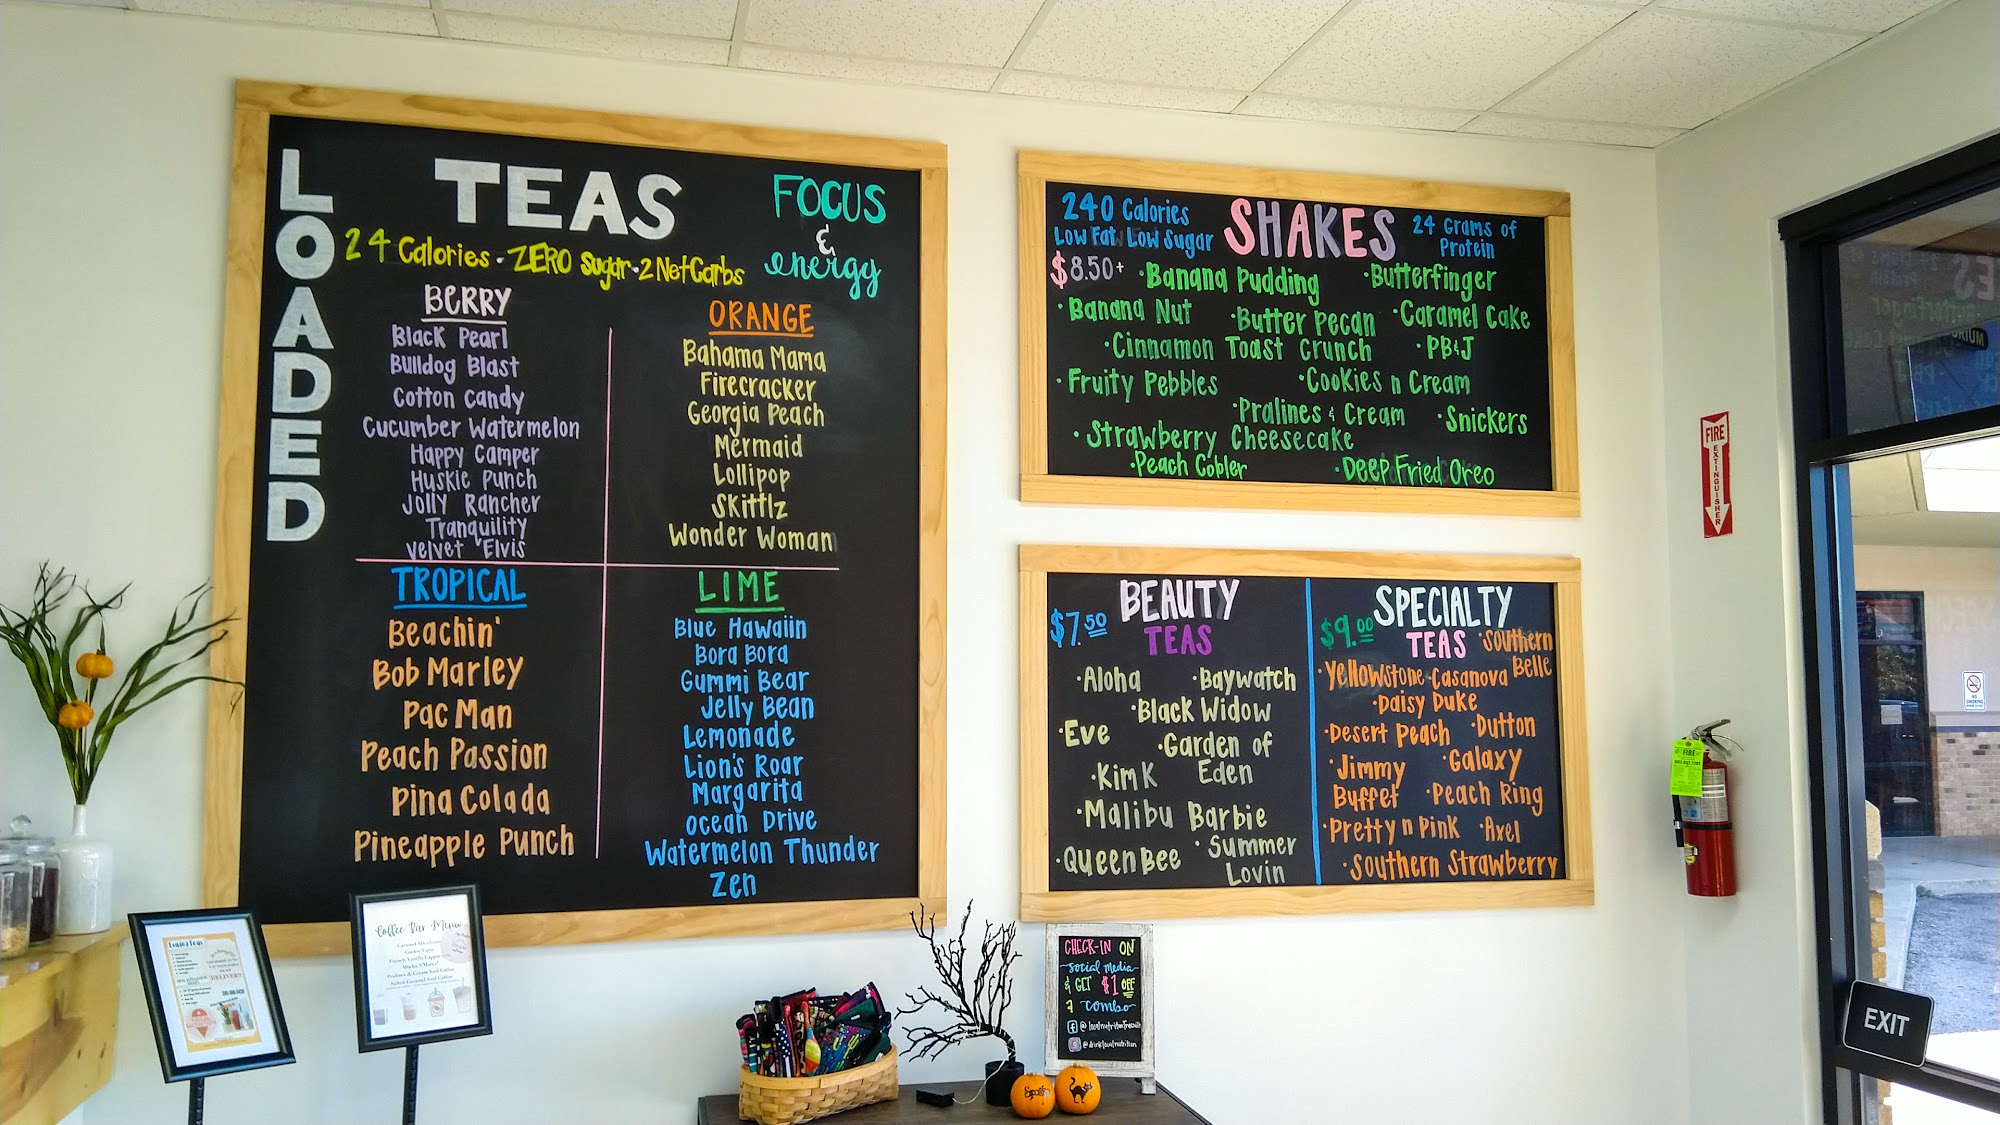 LOADED
TEAS
FOCUS
&
energy
24 Calories · ZERO Sugar · 2 Net Carbs
BERRY
Black Pearl
Bulldog Blast
Cotton Candy
Cucumber Watermelon
Happy Camper
Huskie Punch
Jolly Rancher
Tranquility
Velvet Elvis
ORANGE
Bahama Mama
Firecracker
Georgia Peach
Mermaid
Lollipop
Skittlz
Wonder Woman
TROPICAL
Beachin'
Bob Marley
Pac Man
Peach Passion
Pina Colada
Pineapple Punch
LIME
Blue Hawaiin
Bora Bora
Gummi Bear
Jelly Bean
Lemonade
Lion's Roar
Margarita
Ocean Drive
Watermelon Thunder
Zen
240 Calories
Low Fat, Low Sugar
SHAKES
24 Grams of
Protein
$8.50+
·Banana Pudding ·Butterfinger
·Banana Nut ·Butter Pecan ·Caramel Cake
·Cinnamon Toast Crunch ·PB&J
·Fruity Pebbles ·Cookies n Cream
·Pralines & Cream ·Snickers
·Strawberry Cheesecake
·Peach Cobler ·Deep Fried Oreo
$7.50
BEAUTY
TEAS
·Aloha ·Baywatch
·Black Widow
·Eve ·Garden of
Eden
·Kim K
·Malibu Barbie
·Queen Bee ·Summer
Lovin
$9.00
SPECIALTY
TEAS
·Southern
Belle
·Yellowstone ·Casanova
·Daisy Duke
·Desert Peach ·Dutton
·Jimmy
Buffet
·Galaxy
·Peach Ring
·Pretty n Pink ·Axel
·Southern Strawberry
FIRE
EXTINGUISHER
FIRE
EXIT
CHECK-IN ON
social media
& GET $1 OFF
a combo
Coffee Bar Menu
Loaded Teas
DELIVER
Spooky
NO
SMOKING